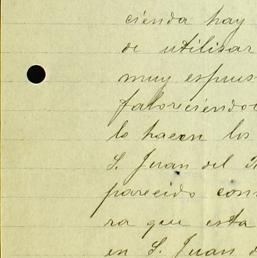 cienda hay
de utilisar
muy espues
faloreciendo
lo hacen los
S. Juan del
parecido con
ra que esta
en S. Juan d